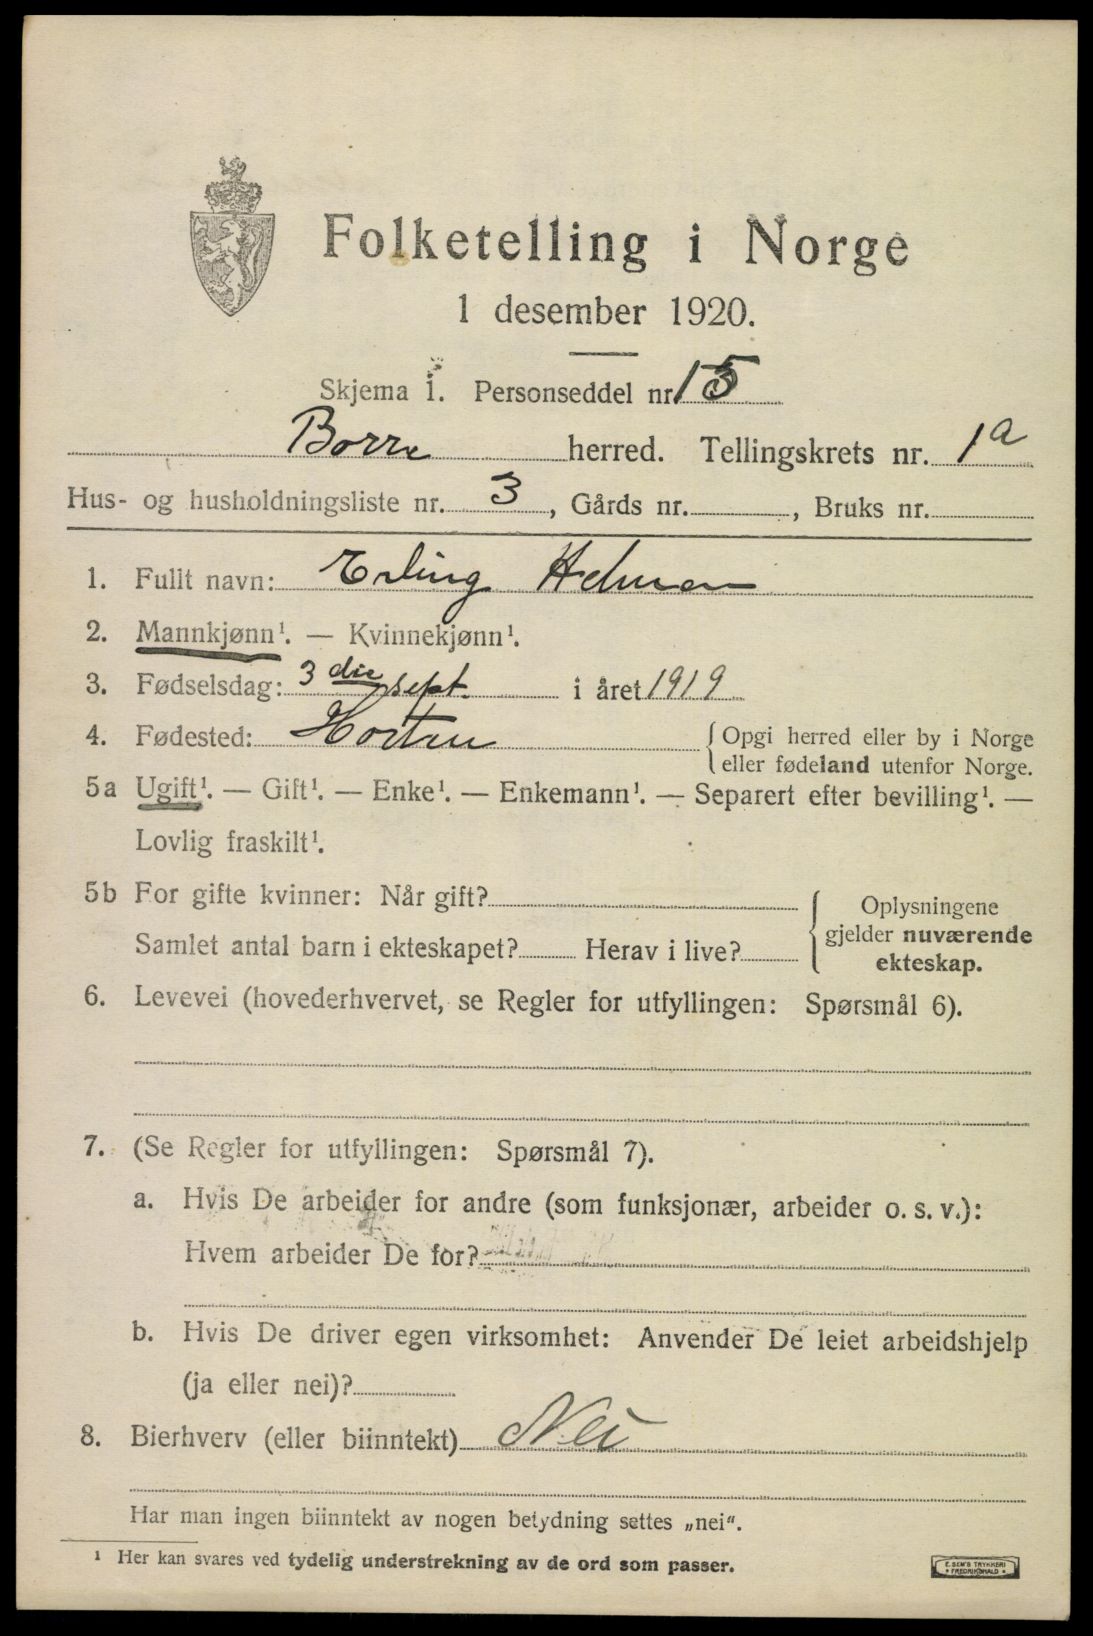 Folketelling i Norge
1 desember 1920.
Skjema 1. Personseddel nr. 15
Borre herred. Tellingskrets nr. 1a
Hus- og husholdningsliste nr. 3, Gårds nr. , Bruks nr.
1. Fullt navn: Erling
2. Mannkjønn¹. — Kvinnekjønn¹.
3. Fødselsdag: 3 die sept. i året 1919
4. Fødested: Horten {Opgi herred eller by i Norge
eller fødeland utenfor Norge.
5a Ugift¹. — Gift¹. — Enke¹. — Enkemann¹. — Separert efter bevilling¹. —
Lovlig fraskilt¹.
5b For gifte kvinner: Når gift?
Samlet antal barn i ekteskapet? Herav i live?
Oplysningene
gjelder nuværende
ekteskap.
6. Levevei (hovederhvervet, se Regler for utfyllingen: Spørsmål 6).
7. (Se Regler for utfyllingen: Spørsmål 7).
a. Hvis De arbeider for andre (som funksjonær, arbeider o. s. v.):
Hvem arbeider De for?
b. Hvis De driver egen virksomhet: Anvender De leiet arbeidshjelp
(ja eller nei)?
8. Bierhverv (eller biinntekt) Nei
Har man ingen biinntekt av nogen betydning settes „nei".
¹ Her kan svares ved tydelig understrekning av de ord som passer.
E. SEM'S TRYKKERI
• FREDRIKSHALD •